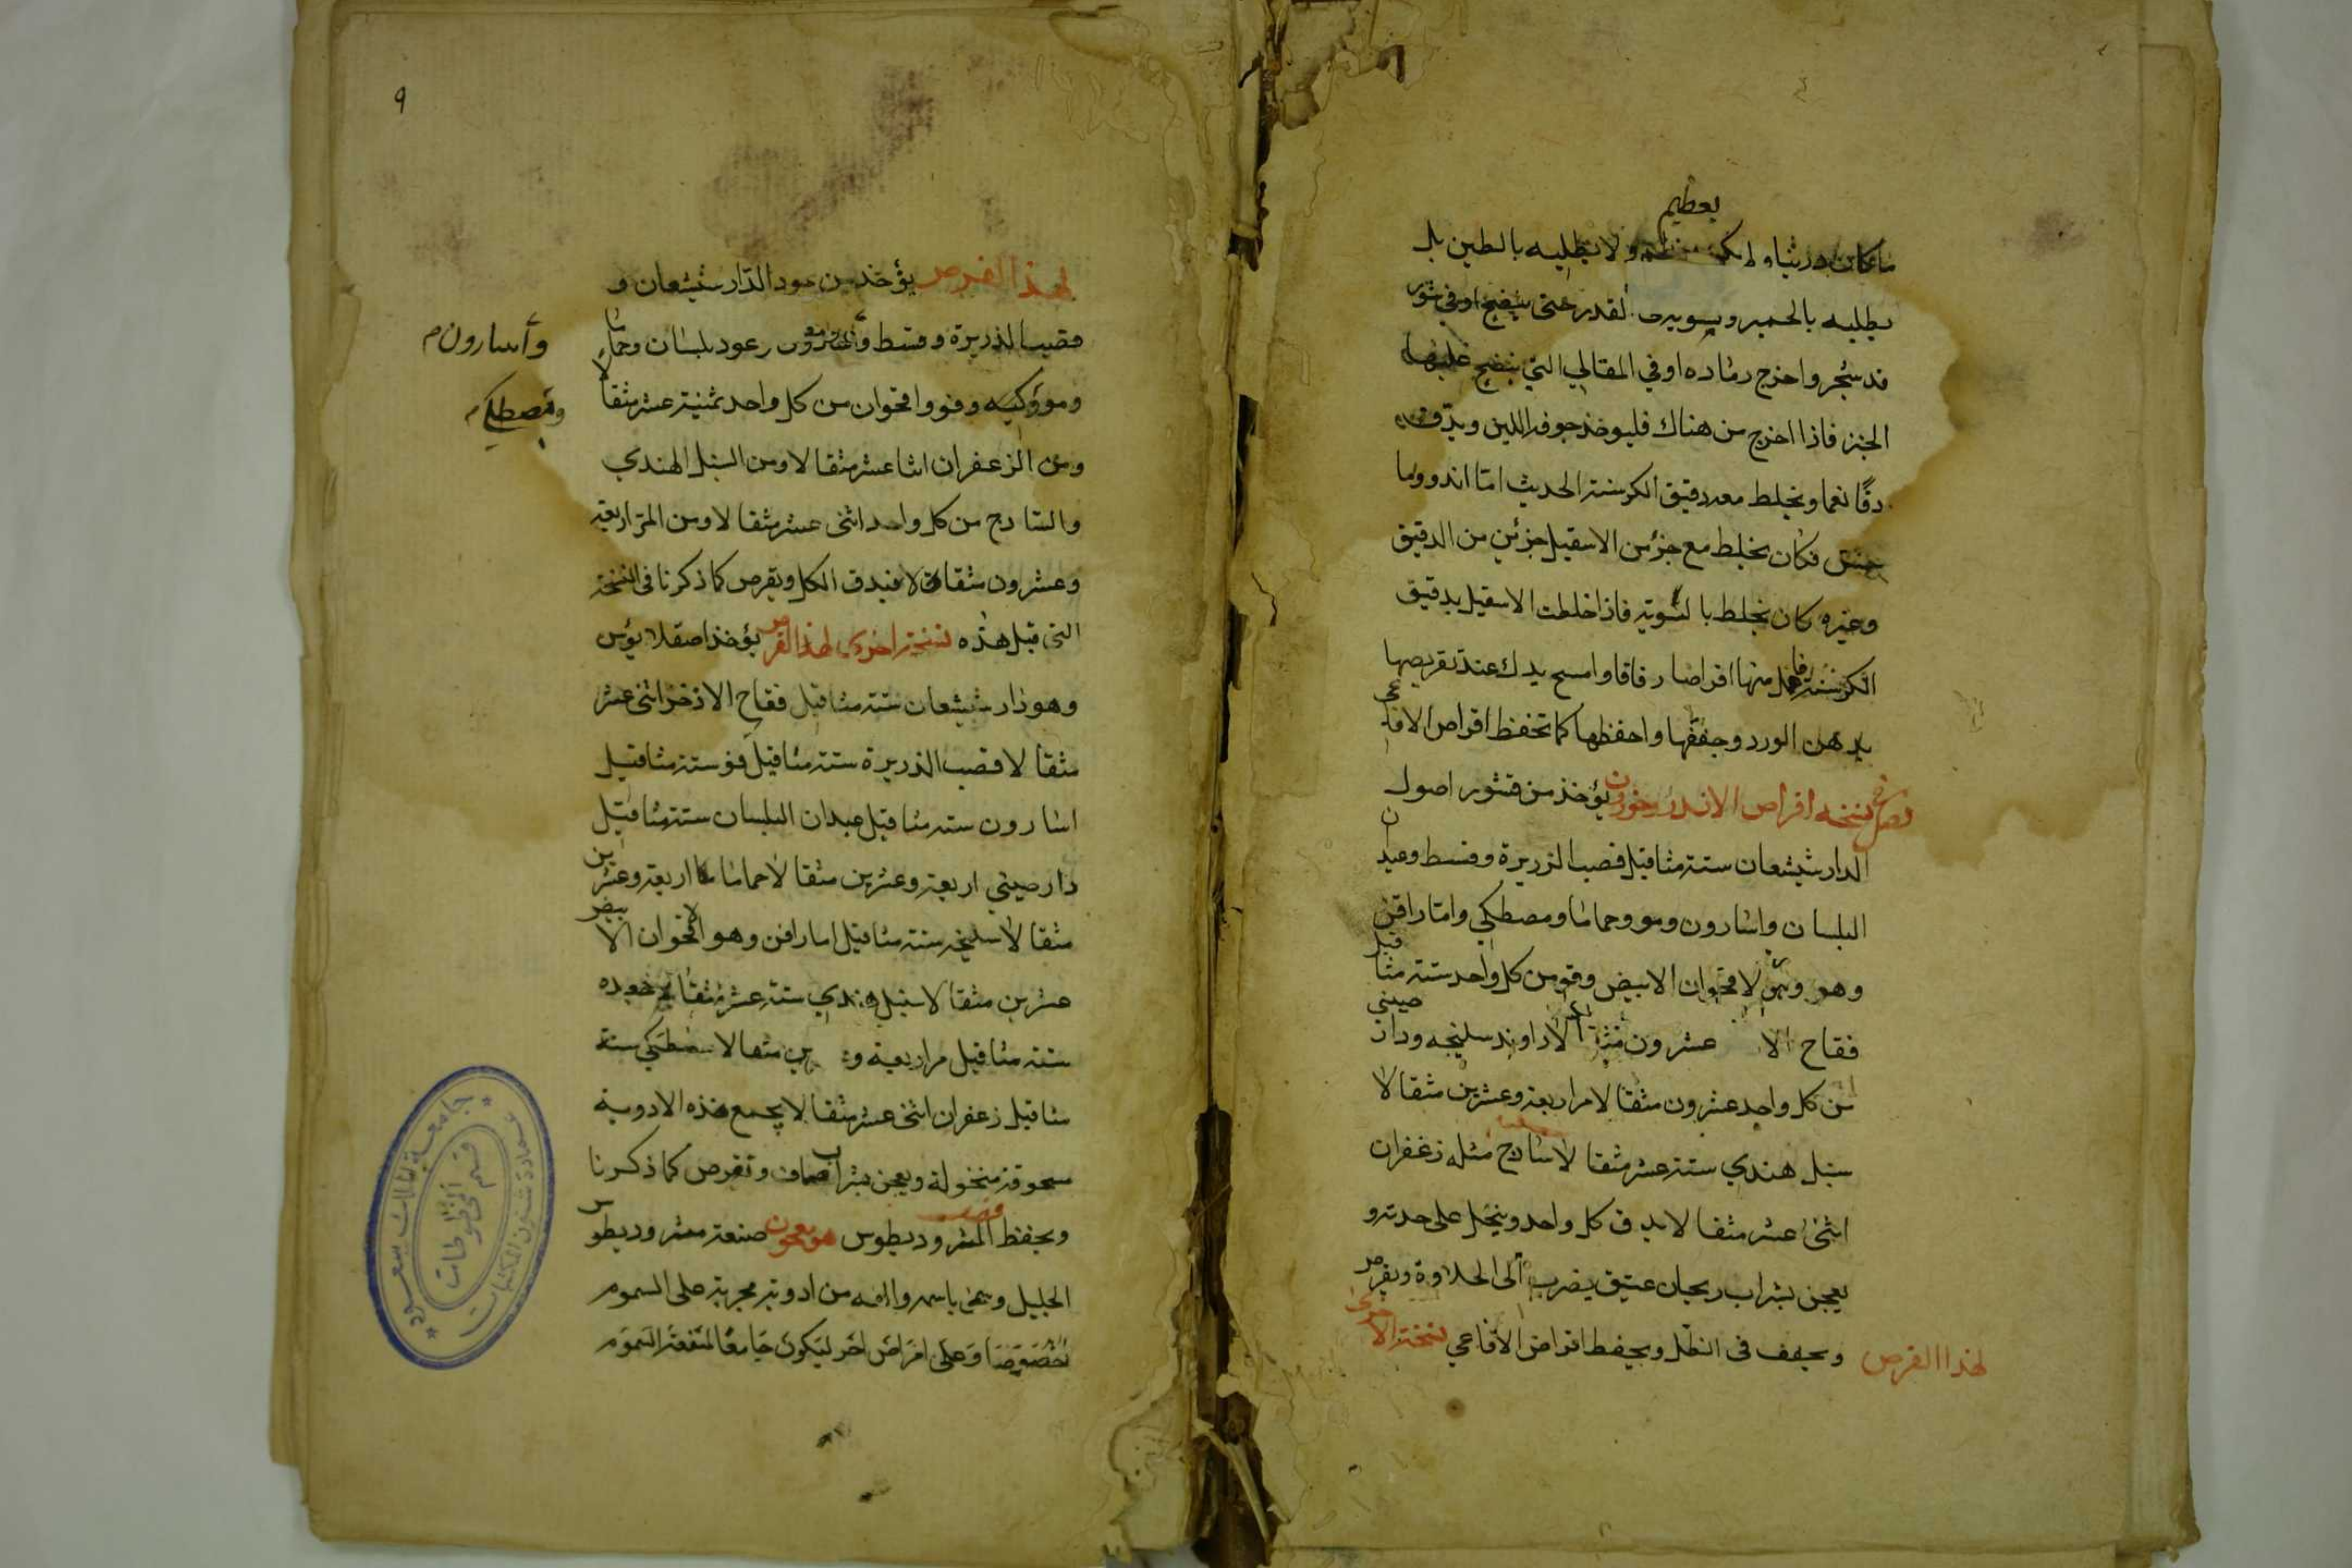 بعظيم
ولا يطليه بالطين بل
يطليه بالخمير ويسويه في القدر حتى ينضج او في تنور
قد سجر واخرج رماده او في المقالي التي ينضج عليها
الخبز فاذا اخرج من هناك فليوخذ جوفه اللين ويدق
دقا نعما ويخلط معه دقيق الكرسنة الحديث اما اندروما
خس فكان يخلط مع جزء من الاسقيل جزئين من الدقيق
وغيره كان يخلط بالسوية فاذا خلطت الاسقيل بدقيق
الكرسنة فاعمل منها اقراصا رقاقا وامسح يدك عند تقريصها
بدهن الورد وجففها واحفظها كما تحفظ اقراص الافاعي
نسخة اقراص الاندروخورون يؤخذ من قشور اصول
الدارشيشعان ستة مثاقيل قصب الزريرة وقسط وعيدان
البلسان واسارون ومو وحماما ومصطكي واماراقن
وهو الاقحوان الابيض وفو من كل واحد ستة مثاقيل
فقاح الا عشرون مثقالا راوند سليخه ودارصيني
من كل واحد عشرون مثقالا مر اربعة وعشرين مثقالا
سنبل هندي ستة عشر مثقالا ساذج مثله زعفران
اثنى عشر مثقالا يدق كل واحد وينخل على حدته و
يعجن بشراب ريحان عتيق يضرب الى الحلاوة ويقرص
ويجفف في الظل ويحفظ اقراص الافاعي نسخة الاخرى
لهذا القرص
٩
لهذا القرص يؤخذ من عود الدارشيشعان و
قصب الذريرة وقسط وعود بلسان وحماما
وأسارون
ومو وفو واقحوان من كل واحد ثمنية عشر مثقالا
ومصطكي
ومن الزعفران اثنا عشر مثقالا ومن السنبل الهندي
والساذج من كل واحد اثنى عشر مثقالا ومن المر اربعة
وعشرون مثقالا فيدق الكل ويقرص كما ذكرنا في النسخة
التي قبل هذه نسخة اخرى لهذا القرص يؤخذ اصقلايؤس
وهو دارشيشعان ستة مثاقيل فقاح الاذخر اثنى عشر
مثقالا قصب الذريرة ستة مثاقيل فو ستة مثاقيل
اسارون ستة مثاقيل عيدان البلسان ستة مثاقيل
دارصيني اربعة وعشرين مثقالا حماما اربعة وعشرين
مثقالا سليخه ستة مثاقيل اماراقن وهو الاقحوان الابيض
عشرين مثقالا سنبل هندي ستة عشر مثقالا
ستة مثاقيل مر اربعة و مثقالا مصطكي ستة
مثاقيل زعفران اثنى عشر مثقالا يجمع هذه الادوية
مسحوقة منخولة ويعجن بشراب صاف وتقرص كما ذكرنا
ويحفظ المثروديطوس معجون صنعة مثروديطوس
الجليل وسمى باسمه والفه من ادوية مجربة على السموم
خصوصا وعلى امراض اخر ليكون جامعا لمنفعة السموم
جامعة الملك سعود
عمادة شئون المكتبات
قسم المخطوطات